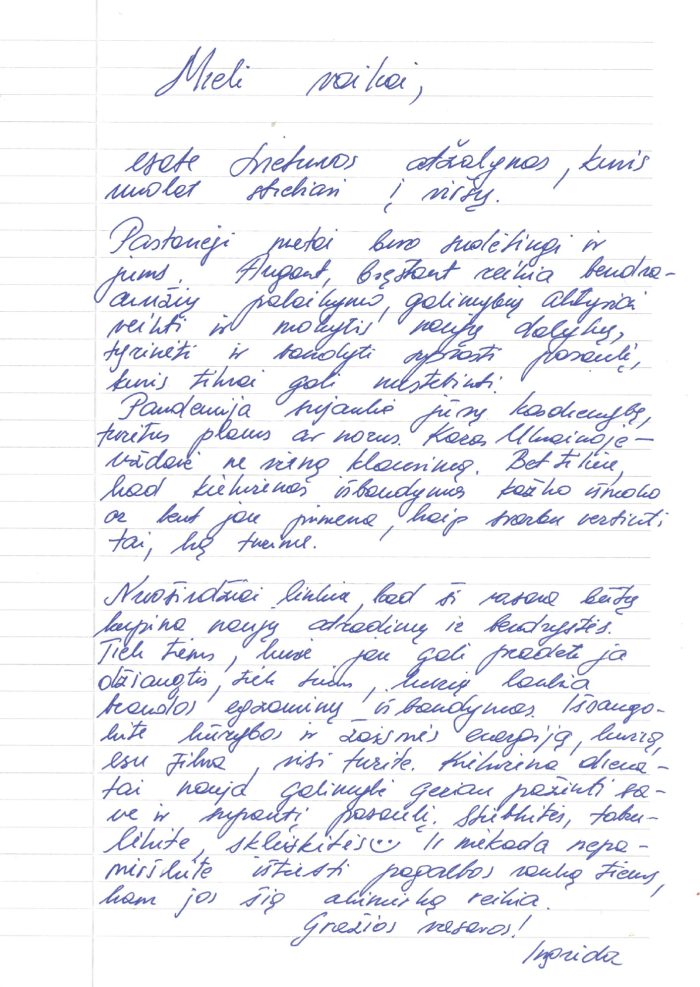 Mieli vaikai,
esate Lietuvos atžalynas, kuris
nuolat stiebiasi į viršų.
Pastarieji metai buvo sudėtingi ir
jums. Augant, bręstant reikia bendra-
amžių palaikymo, galimybių aktyviai
veikti ir mokytis naujų dalykų,
tyrinėti ir bandyti suprasti pasaulį,
kuris tikrai gali nustebinti.
Pandemija sujaukė jūsų kasdienybę,
turėtus planus ar norus. Karas Ukrainoje –
uždavė ne vieną klausimą. Bet tikiu,
kad kiekvienas išbandymas kažko išmoko
ar bent jau primena, kaip svarbu vertinti
tai, ką turime.
Nuoširdžiai linkiu, kad ši vasara būtų
kupina naujų atradimų ir bendrystės.
Tiek tiems, kurie jau gali pradėti ja
džiaugtis, tiek tiems, kurių laukia
brandos egzaminų išbandymas. Išsaugo-
kite kūrybos ir žaismės energiją, kurią,
esu tikra, visi turite. Kiekviena diena –
tai nauja galimybė geriau pažinti sa-
ve ir supantį pasaulį. Stiebkitės, tobu-
lėkite, skleiskitės☺ Ir niekada nepa-
mirškite ištiesti pagalbos ranką tiems,
kam jos šią akimirką reikia.
Gražios vasaros!
Ingrida